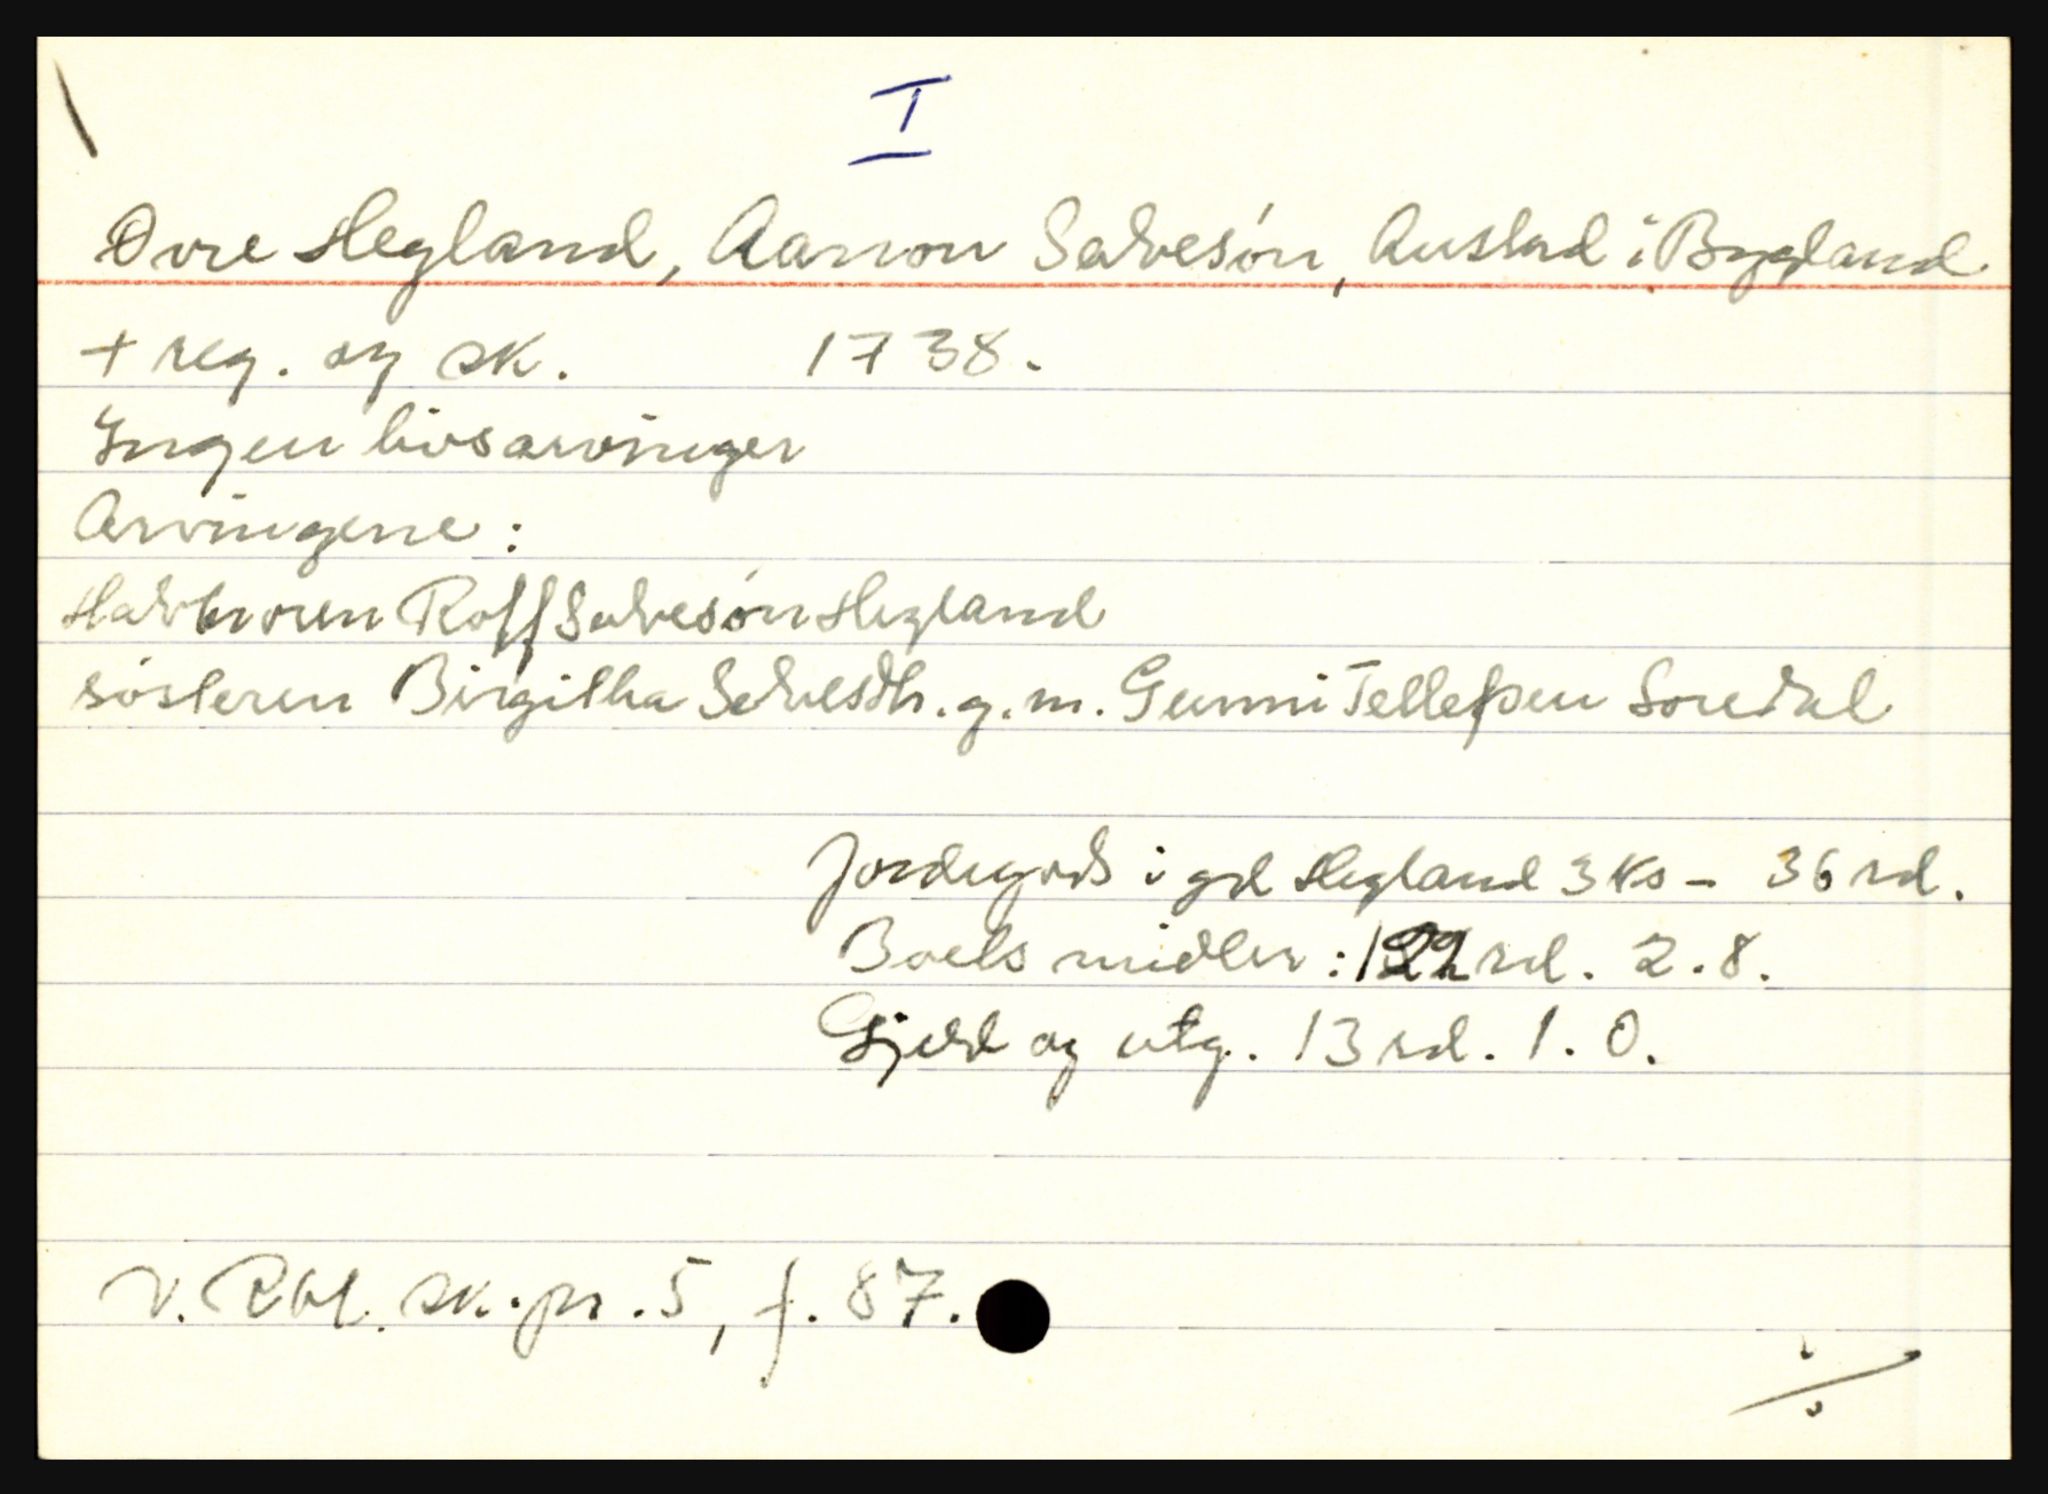 I
Ovre Hegland, Aanon Salvesón, Austad i Bygland
+ reg. og sk. 1738.
Yngen livsarvinger
Arvingene:
Halvbroren Rolf Salvesón Hegland
sósteren Birgitha Salvesdh. g. m. Gunni Telleſsen Loredal
Jordegods i grd Hegland 3 ks - 36 rd.
Boets midler: 122 rd. 2.8.
Gjeld og utg. 13 rd. 1.0.
V. Rbl. sk. pr. 5, f. 87.